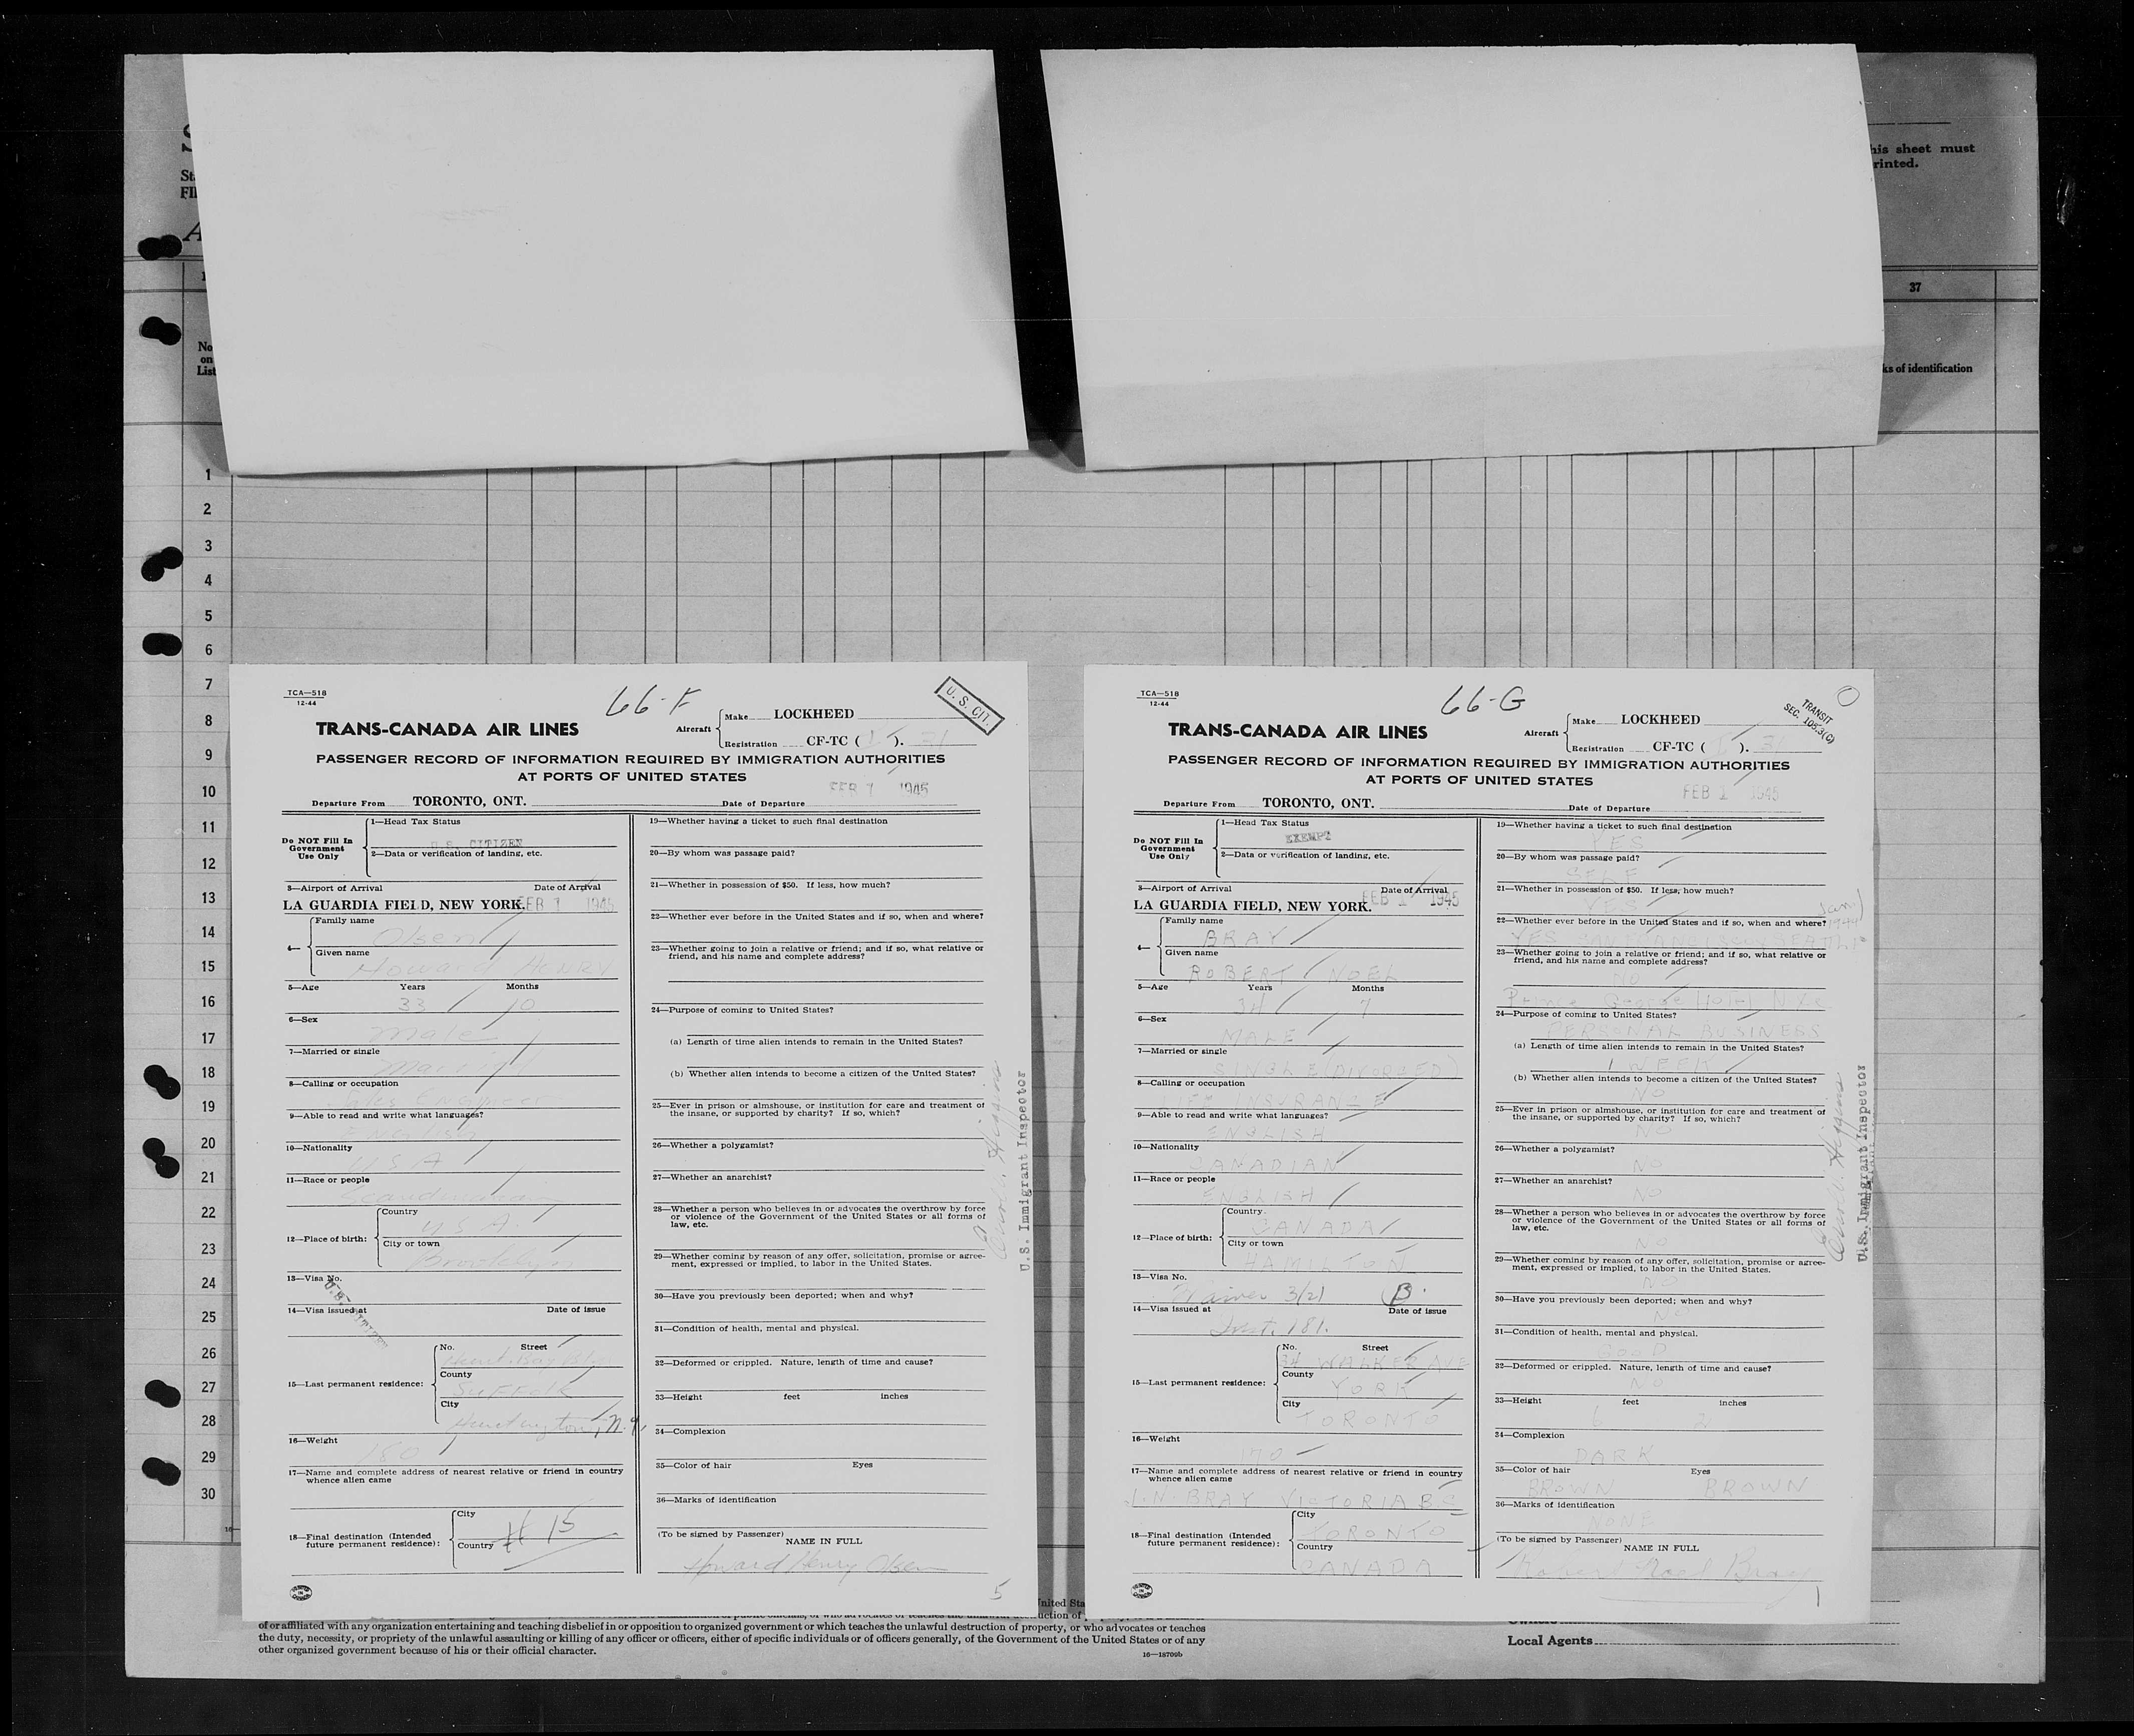 his sheet must
rinted.
37
No
on
List
ks of identification
1
2
3
4
5
6
7
8
9
10
11
12
13
14
15
16
17
18
19
20
21
22
23
24
25
26
27
28
29
30
TCA—518
12-44
66-F
U. S. CIT.
TRANS-CANADA AIR LINES
Aircraft
Make LOCKHEED
Registration CF-TC ( ). 31
PASSENGER RECORD OF INFORMATION REQUIRED BY IMMIGRATION AUTHORITIES
AT PORTS OF UNITED STATES
FEB 1 1945
Departure From TORONTO, ONT. Date of Departure
Do NOT Fill In
Government
Use Only
1—Head Tax Status
U.S. CITIZEN
2—Data or verification of landing, etc.
3—Airport of Arrival Date of Arrival
LA GUARDIA FIELD, NEW YORK. FEB 1 1945
4—
Family name
Olsen
Given name
Howard Henry
5—Age Years Months
33 10
6—Sex
Male
7—Married or single
Married
8—Calling or occupation
Sales Engineer
9—Able to read and write what languages?
English
10—Nationality
U S A
11—Race or people
Scandinavian
12—Place of birth:
Country
U.S.A.
City or town
Brooklyn
13—Visa No.
14—Visa issued at Date of issue
15—Last permanent residence:
No. Street
County
Suffolk
City
Huntington, N.Y.
16—Weight
180
17—Name and complete address of nearest relative or friend in country
whence alien came
18—Final destination (Intended
future permanent residence):
City
Country
# 15
19—Whether having a ticket to such final destination
20—By whom was passage paid?
21—Whether in possession of $50. If less, how much?
22—Whether ever before in the United States and if so, when and where?
23—Whether going to join a relative or friend; and if so, what relative or
friend, and his name and complete address?
24—Purpose of coming to United States?
(a) Length of time alien intends to remain in the United States?
(b) Whether alien intends to become a citizen of the United States?
25—Ever in prison or almshouse, or institution for care and treatment of
the insane, or supported by charity? If so, which?
26—Whether a polygamist?
27—Whether an anarchist?
28—Whether a person who believes in or advocates the overthrow by force
or violence of the Government of the United States or all forms of
law, etc.
29—Whether coming by reason of any offer, solicitation, promise or agree-
ment, expressed or implied, to labor in the United States.
30—Have you previously been deported; when and why?
31—Condition of health, mental and physical.
32—Deformed or crippled. Nature, length of time and cause?
33—Height feet inches
34—Complexion
35—Color of hair Eyes
36—Marks of identification
(To be signed by Passenger)
NAME IN FULL
Howard Henry Olsen
5
U.S. Immigrant Inspector
TCA—518
12-44
66-G
TRANSIT
SEC. 105.3(C)
TRANS-CANADA AIR LINES
Aircraft
Make LOCKHEED
Registration CF-TC ( ). 31
PASSENGER RECORD OF INFORMATION REQUIRED BY IMMIGRATION AUTHORITIES
AT PORTS OF UNITED STATES
FEB 1 1945
Departure From TORONTO, ONT. Date of Departure
Do NOT Fill In
Government
Use Only
1—Head Tax Status
EXEMPT
2—Data or verification of landing, etc.
3—Airport of Arrival Date of Arrival
LA GUARDIA FIELD, NEW YORK. FEB 1 1945
4—
Family name
BRAY
Given name
ROBERT NOEL
5—Age Years Months
34 7
6—Sex
MALE
7—Married or single
SINGLE (DIVORCED)
8—Calling or occupation
LIFE INSURANCE
9—Able to read and write what languages?
ENGLISH
10—Nationality
CANADIAN
11—Race or people
ENGLISH
12—Place of birth:
Country
CANADA
City or town
HAMILTON
13—Visa No.
Waiver 3/21 B.
14—Visa issued at Date of issue
Inst. 181.
15—Last permanent residence:
No. Street
34 WALKER AVE
County
YORK
City
TORONTO
16—Weight
170
17—Name and complete address of nearest relative or friend in country
whence alien came
J. N. BRAY VICTORIA BC
18—Final destination (Intended
future permanent residence):
City
TORONTO
Country
CANADA
19—Whether having a ticket to such final destination
YES
20—By whom was passage paid?
SELF
21—Whether in possession of $50. If less, how much?
YES
22—Whether ever before in the United States and if so, when and where?
YES
23—Whether going to join a relative or friend; and if so, what relative or
friend, and his name and complete address?
NO
Prince George Hotel N.Y.C
24—Purpose of coming to United States?
PERSONAL BUSINESS
(a) Length of time alien intends to remain in the United States?
1 WEEK
(b) Whether alien intends to become a citizen of the United States?
NO
25—Ever in prison or almshouse, or institution for care and treatment of
the insane, or supported by charity? If so, which?
NO
26—Whether a polygamist?
NO
27—Whether an anarchist?
NO
28—Whether a person who believes in or advocates the overthrow by force
or violence of the Government of the United States or all forms of
law, etc.
NO
29—Whether coming by reason of any offer, solicitation, promise or agree-
ment, expressed or implied, to labor in the United States.
NO
30—Have you previously been deported; when and why?
NO
31—Condition of health, mental and physical.
GOOD
32—Deformed or crippled. Nature, length of time and cause?
NO
33—Height feet inches
6 2
34—Complexion
DARK
35—Color of hair Eyes
BROWN BROWN
36—Marks of identification
NONE
(To be signed by Passenger)
NAME IN FULL
Robert Noel Bray
1
U.S. Immigrant Inspector
of or affiliated with any organization entertaining and teaching disbelief in or opposition to organized government or which teaches the unlawful destruction of property, or who advocates or teaches
the duty, necessity, or propriety of the unlawful assaulting or killing of any officer or officers, either of specific individuals or of officers generally, of the Government of the United States or of any
other organized government because of his or their official character.
16—18709b
Local Agents